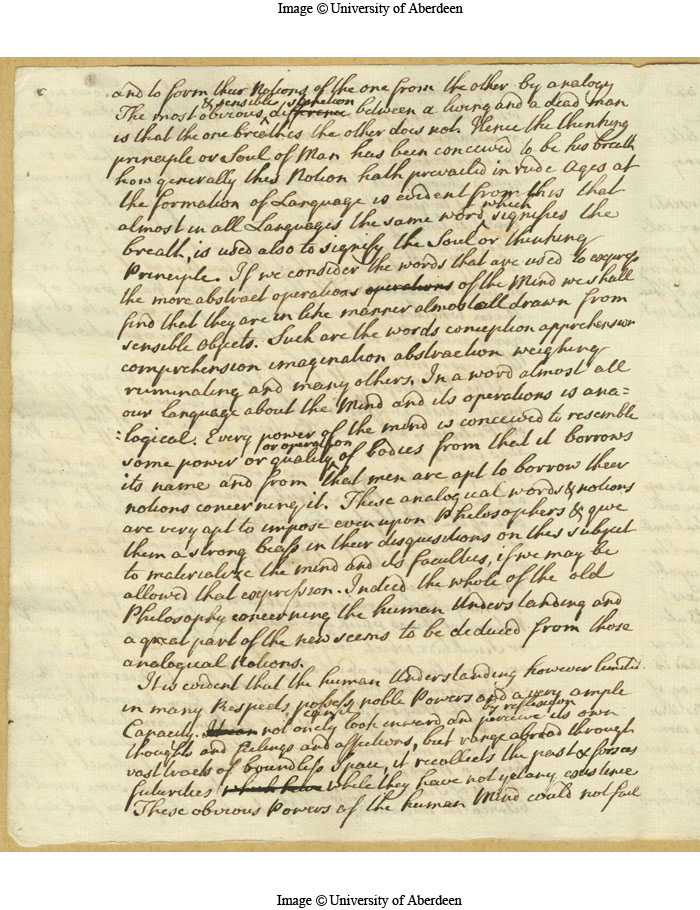 Image © University of Aberdeen
and to form their Notions of the one from the other by analogy
The most obvious & sensible distinction difference between a living and a dead man
is that the one breathes the other does not. Hence the thinking
principle or Soul of Man has been conceived to be his breath
how generally this Notion hath prevailed in rude Ages at
the formation of Language is evident from this that
almost in all Languages the same word which signifies the
breath, is used also to signify the Soul or thinking
Principle. If we consider the words that are used to express
the more abstract operations operations of the Mind we shall
find that they are in like manner almost all drawn from
sensible Objects. Such are the words conception apprehension
comprehension imagination abstraction weighing
ruminating and many others. In a word almost all
our language about the Mind and its operations is ana=
=logical. Every power of the mind is conceived to resemble
some power or quality or operation of bodies from that it borrows
its name and from that men are apt to borrow their
notions concerning it. These analogical words & notions
are very apt to impose even upon Philosophers & give
them a strong beass in their disquisitions on this subject
to materialize the mind and its faculties, if we may be
allowed that expression. Indeed the whole of the old
Philosophy concerning the human Understanding and
a great part of the new seems to be deduced from those
analogical Notions.
It is evident that the human Understanding however limited
in many Respects possess noble Powers and a very ample
Capacity. It can not only look inward and by reflexion perceive its own
thoughts and feelings and affections, but range abroad through
vast tracts of boundless Space, it recollects the past & forsees
futurities which have while they have not yet any existence
These obvious Powers of the human Mind could not fail
Image © University of Aberdeen